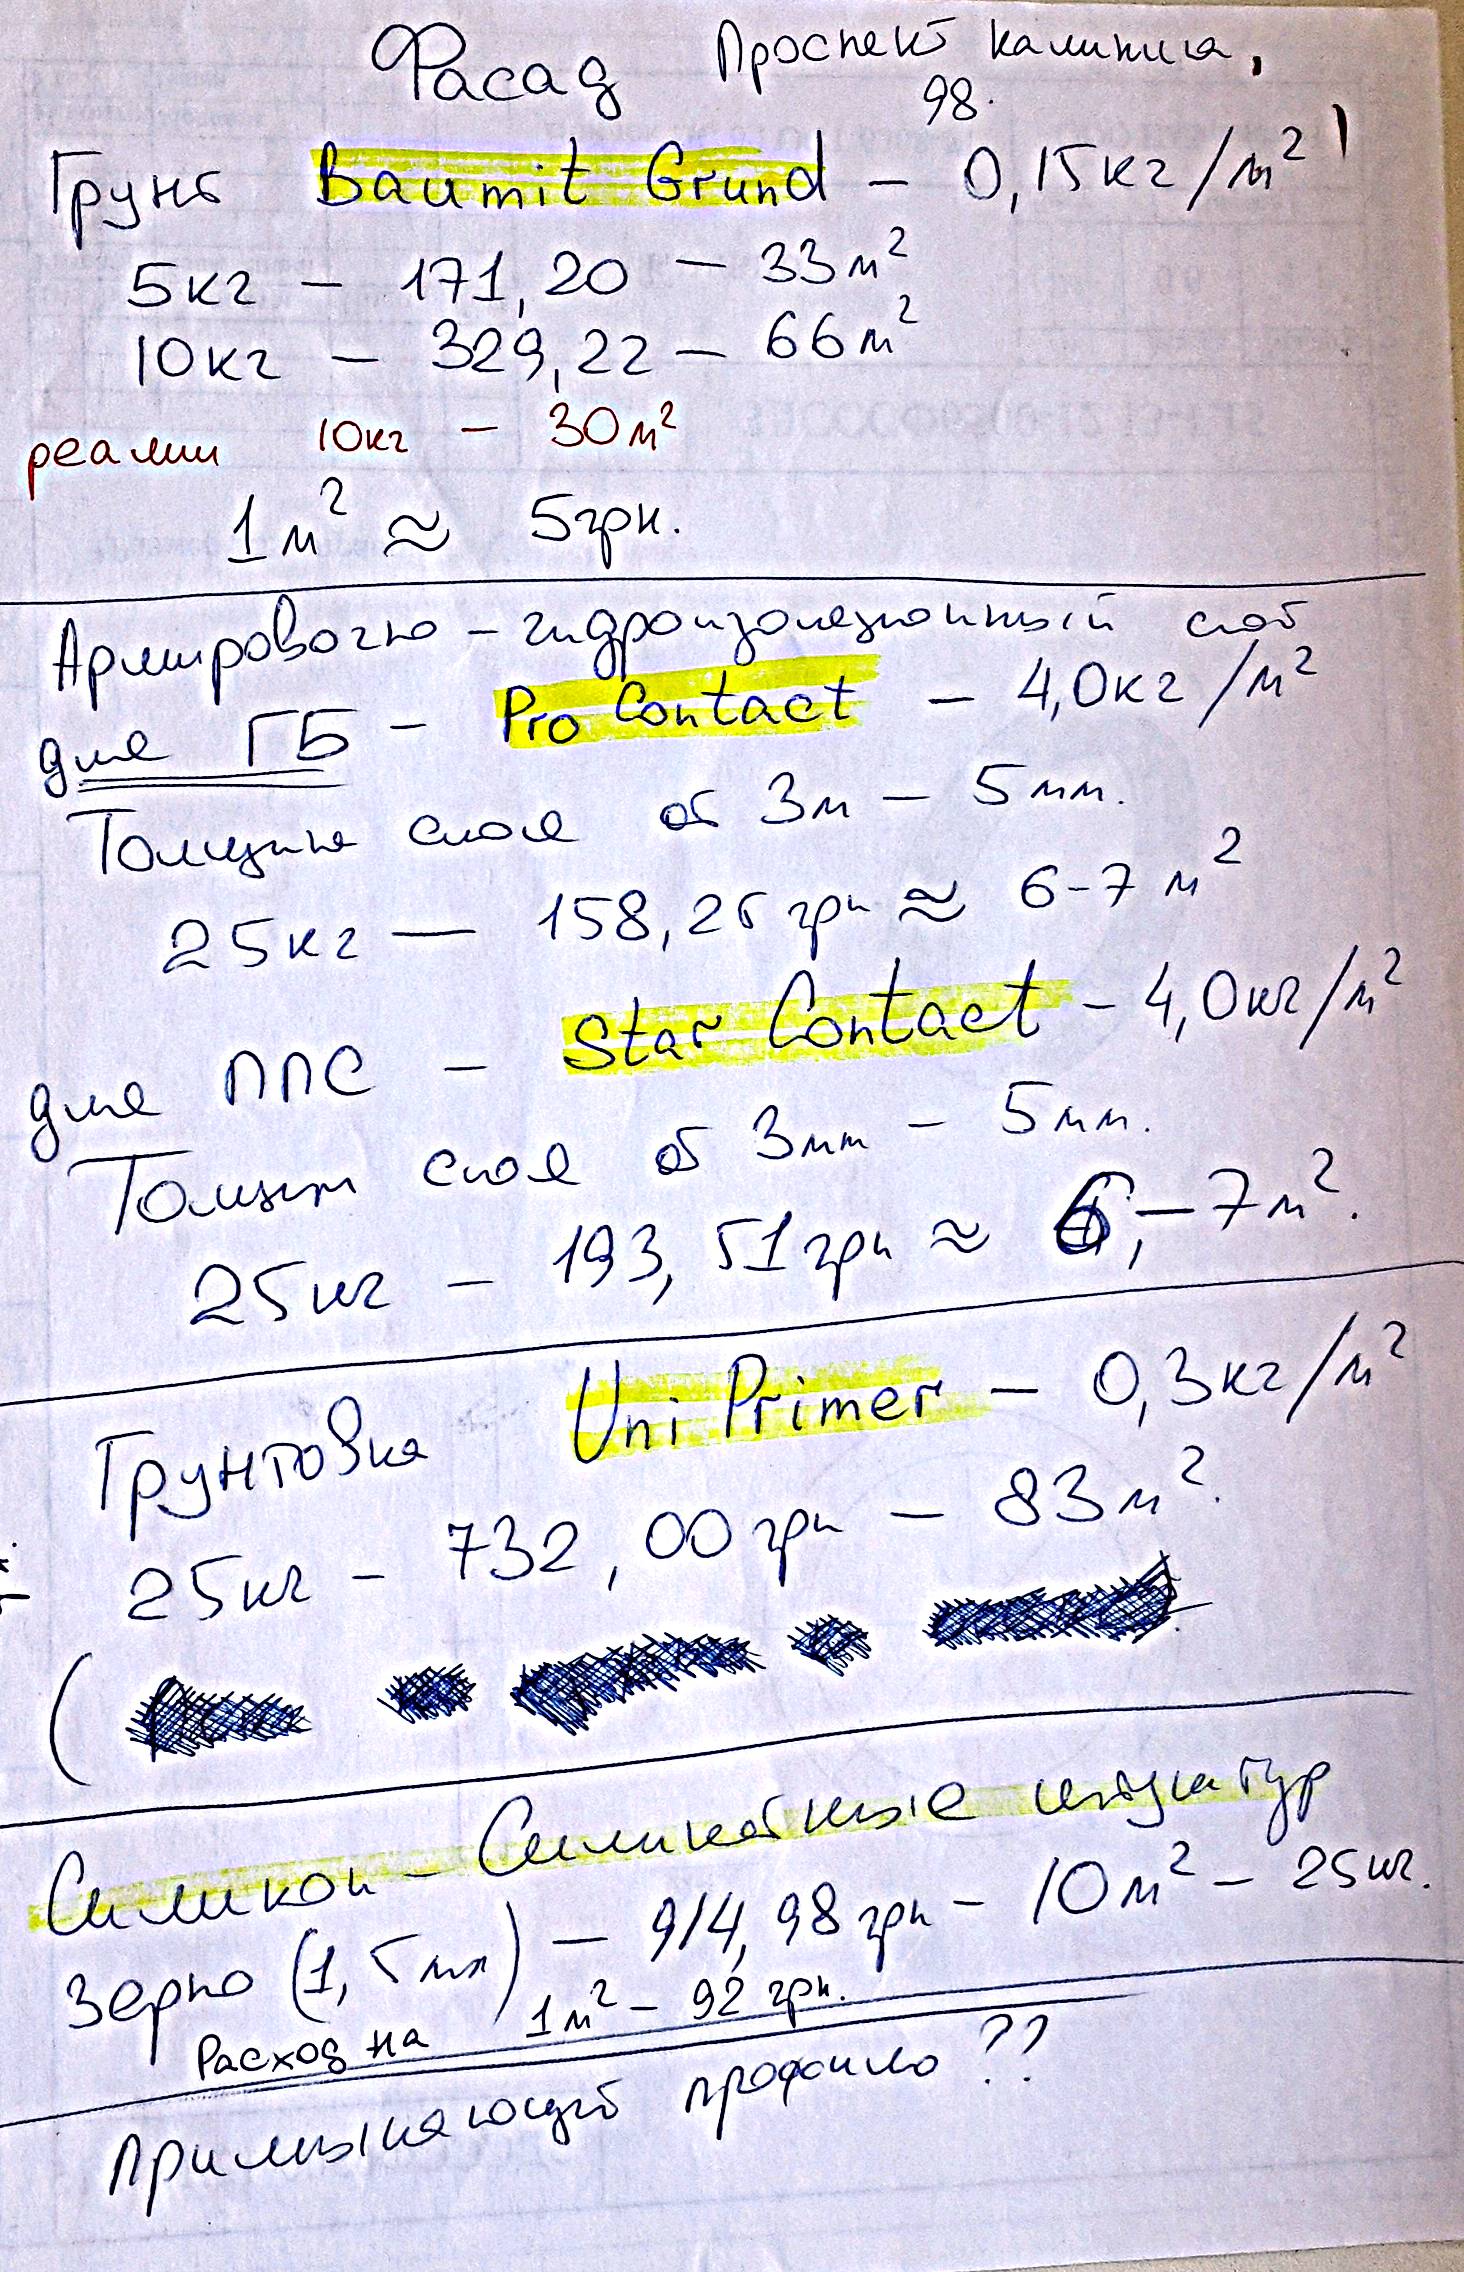 Фасад Проспект Калинина,
98.
Грунт Baumit Grund – 0,15кг/м²
5кг – 171,20 – 33м²
10кг – 329,22 – 66м²
реалии 10кг – 30м²
1м² ≈ 5грн.
Армировочно – гидроизоляционный слой
для ГБ – Pro Contact – 4,0кг/м²
Толщина слоя от 3м – 5мм.
25кг – 158,25 грн ≈ 6-7 м²
для ППС – Star Contact – 4,0кг/м²
Толщина слоя от 3мм – 5мм.
25кг – 193,51 грн ≈ 6,–7м².
Грунтовка Uni Primer – 0,3кг/м²
25кг – 732,00грн – 83м².
(
Силикон – Силикатные штукатур
Зерно (1,5мм) – 914,98 грн – 10м² – 25кг.
Расход на 1м² – 92 грн.
Примыкающий профиль ??